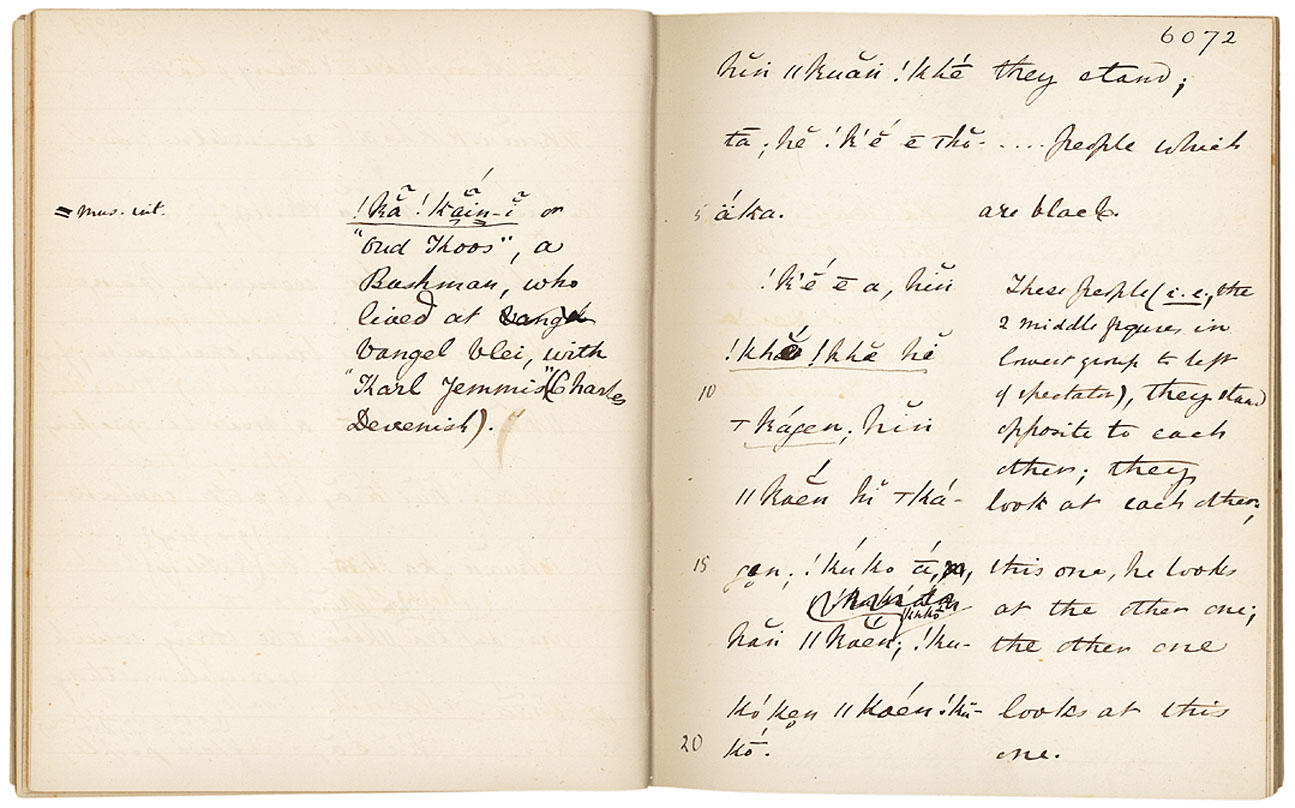 = Mus. int.
!kã !kãin-ĩ or
"Oud Koos", a
Bushman, who
lived at
Vangel Vlei, with
"Karl Jemmis" (Charles
Devenish).
6072
hĭn ||kuăn !khé they stand;
tā; hĕ !k'ĕ́ ē ⊤hŏ- .... people which
5 áka. are black.
!k'ĕ́ ē a, hĭn These people (i.e., the
2 middle figures in
!khĕ́ !khĕ hĭ lowest group to left
10 of spectator), they stand
⊤kágen; hĭn opposite to each
other; they
||koĕ́n hĭ ⊤ká- look at each other;
15 gen; !kúko á, this one, he looks
at the other one;
hăn ||koĕ́n; !ku- the other one
kó ken ||koén !kŭ- looks at this
20 kó. one.